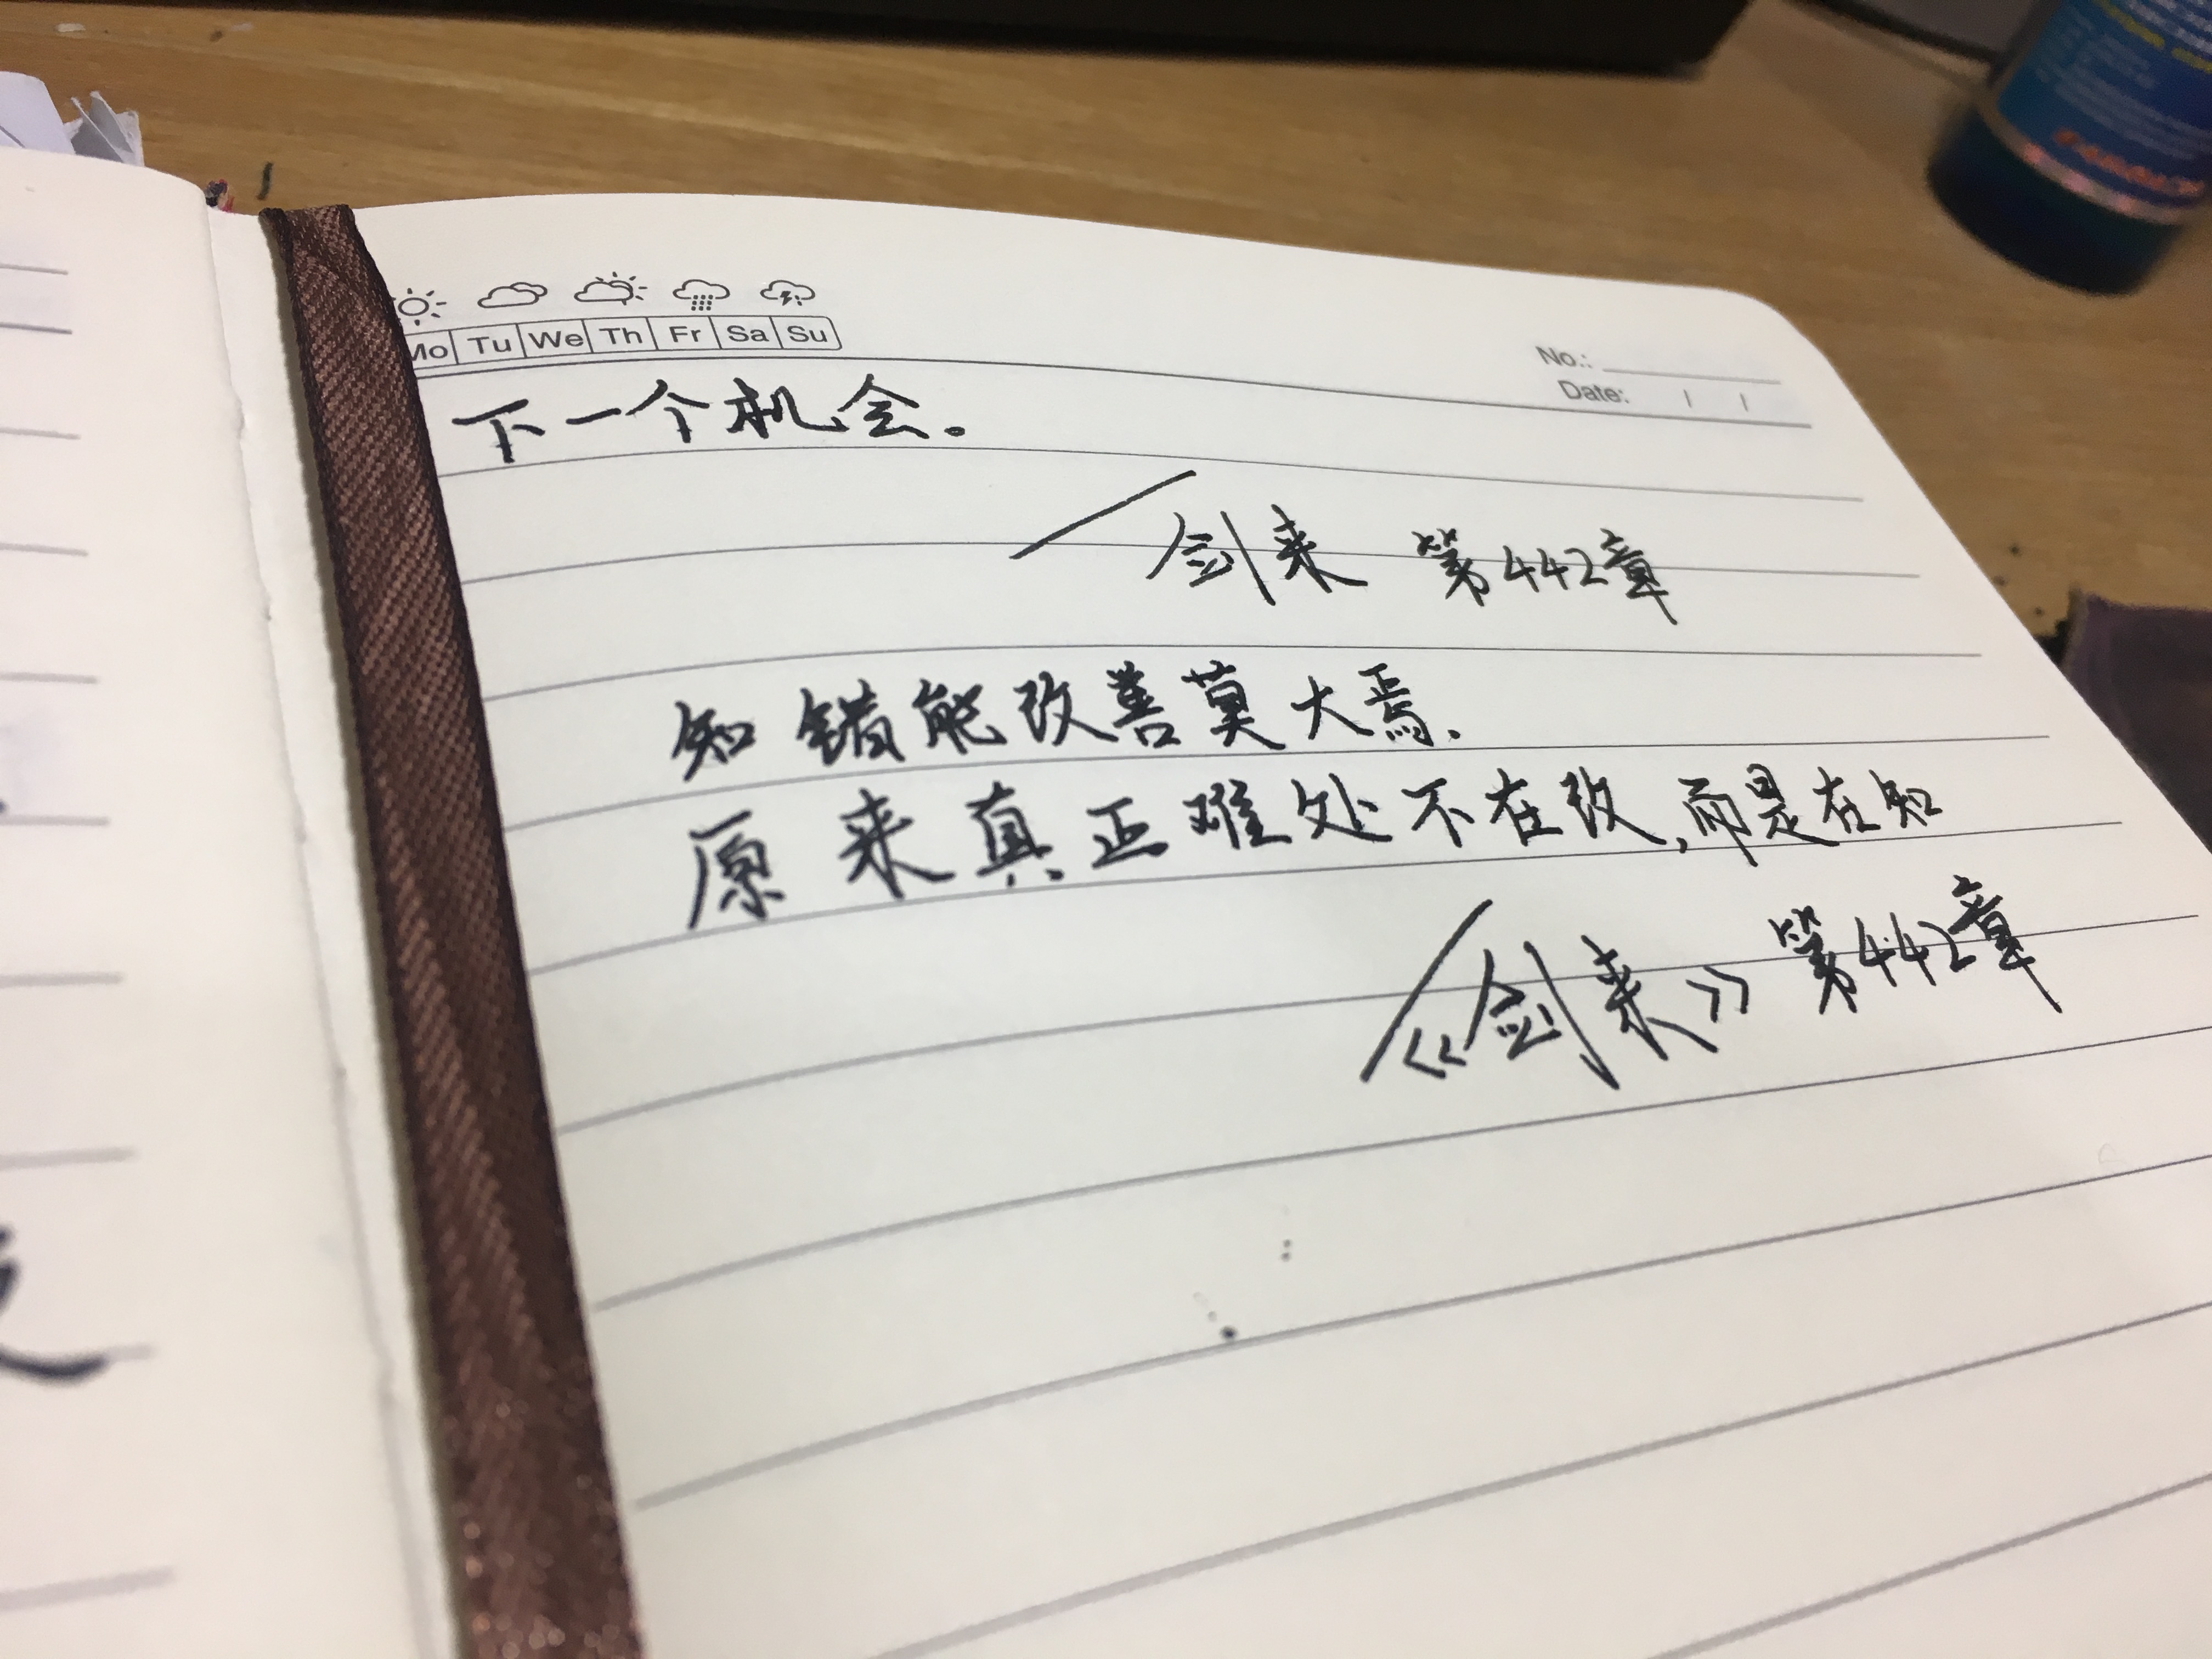 Mo Tu We Th Fr Sa Su
No.:
Date: / /
下一个机会。
剑来 第442章
知错能改善莫大焉.
原来真正难处不在改,而是在知
《剑来》 第442章